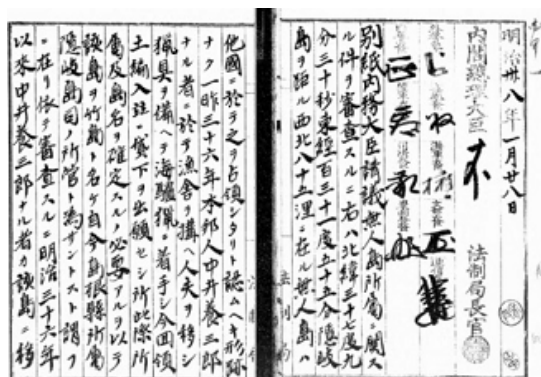 明治卅八年一月廿八日
内閣總理大臣
法制局長官
別紙内務大臣請議無人島所屬ニ関ス
ル件ヲ審査スルニ右ハ北緯三十七度九
分三十秒東經百三十一度五十五分隱岐
島ヲ距ル西北八十五浬ニ在ル無人島ハ
他國ニ於テ之ヲ占領シタリト認ムヘキ形跡
ナク一昨三十六年本邦人中井養三郎
ナル者ニ於テ漁舎ヲ構ヘ人夫ヲ移シ
猟具ヲ備ヘテ海驢猟ニ着手シ今回領
土編入並ニ貸下ヲ出願セシ所此際所
屬及島名ヲ確定スルノ必要アルヲ以テ
該島ヲ竹島ト名ケ自今島根縣所屬
隱岐島司ノ所管ト為サントスト謂フ
ニ在リ依テ審査スルニ明治三十六年
以来中井養三郎ナル者カ該島ニ移